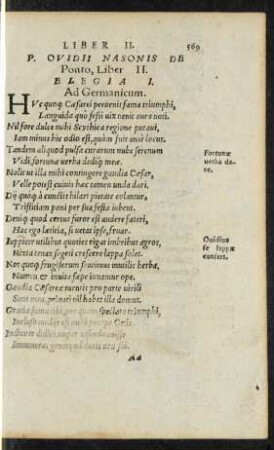 LIBER II.
569
P. OVIDII NASONIS DE
Ponto, Liber II.
ELEGIA I.
Ad Germanicum.
HVc quoq; Cæsarei peruenit fama triumphi,
Languida quò fessi uix uenit aura noti.
Nil fore dulce mihi Scythica regione putaui,
Iam minus hic odio est, quàm fuit antè locus.
Tandem aliquid pulsa curarum nube serenum
Vidi, fortunæ uerba dediq; meæ.
Fortunæ
uerba da-
re.
Nolit ut ulla mihi contingere gaudia Cæsar,
Velle potest cuiuis hæc tamen una dari.
Dij quoq; à cunctis hilari pietate colantur,
Tristitiam poni per sua festa iubent.
Deniq; quod certus furor est audere fateri,
Hac ego lætitia, si uetet ipse, fruar.
Iuppiter utilibus quoties rigat imbribus agros,
Mixta tenax segeti crescere lappa solet.
Ouidius
se lappæ
Nos quoq; frugiferum sentimus inutilis herba,
Numen et inuita sæpe iuuamur ope.
Gaudia Cæsareæ mentis pro parte uirili
Sunt mea, priuati nil habet illa domus.
Gratia fama tibi, per quam spectata triumphi,
Incluso mihi est
Indice te didici, nuper
Innumeras gentes ad ducis ora sui.
Aa